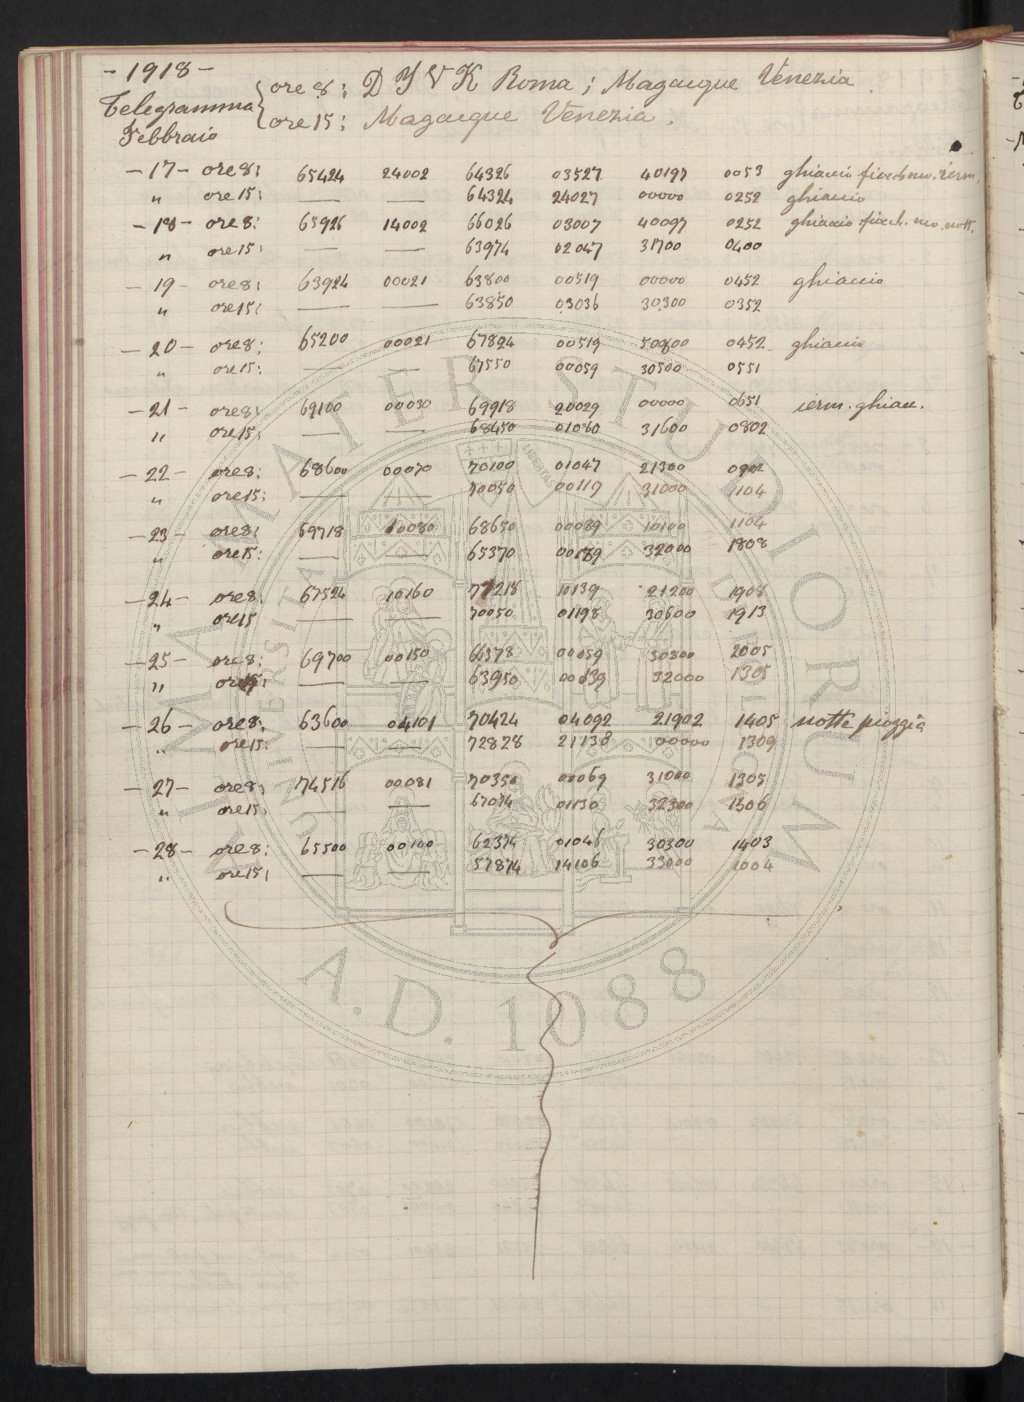 - 1918 -
Telegramma { ore 8: D Y V K Roma; Magacque Venezia.
Febbraio { ore 15: Magacque Venezia.
- 17 - ore 8: 65424 24002 64326 03527 40197 0053 ghiaccio
" ore 15: — — 64324 24027 00000 0252 ghiaccio
- 18 - ore 8: 65926 14002 66026 03007 40097 0252 ghiaccio
" ore 15: — — 63974 02047 31700 0400
- 19 - ore 8: 63924 00021 63800 00519 00000 0452 ghiaccio
" ore 15: — — 63850 03036 30300 0352
- 20 - ore 8: 65200 00021 67824 00519 50800 0452 ghiaccio
" ore 15: — — 67550 00059 30500 0551
- 21 - ore 8: 69100 00030 69918 20029 00000 0651 term. ghiac.
" ore 15: — — 68450 01060 31600 0802
- 22 - ore 8: 68600 00070 70100 01047 21300
" ore 15: — — 70050 00119 31000 1104
- 23 - ore 8: 69718 10080 68650 00089 10100 1104
" ore 15: — — 65370 00189 32000 1808
- 24 - ore 8: 67524 10160 10139 21200 1908
" ore 15 — — 70050 01198 30600 1913
- 25 - ore 8: 69700 00150 66378 00059 30300 2005
" ore 15: — — 63950 00039 32000 1305
- 26 - ore 8: 63600 04101 70424 04092 21902 1405 notte pioggia
" ore 15: — — 72828 21138 00000 1309
- 27 - ore 8: 74516 00081 70350 00069 31000 1305
" ore 15: — — 67074 01130 32300 1306
- 28 - ore 8: 65500 00100 62374 01046 30300 1403
" ore 15: — — 57874 14106 33000 1004
ALMA MATER STUDIORUM
A.D. 1088